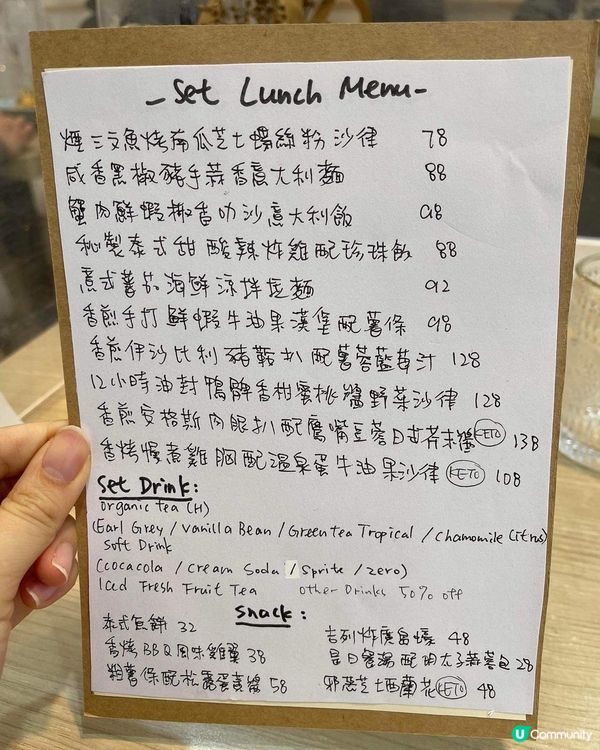 - Set Lunch Menu -
煙三文魚烤南瓜芝士螺絲粉沙律 78
咸香黑椒豬手蒜香意大利麵 88
蟹肉鮮蝦椒香叻沙意大利飯 98
秘製泰式甜酸辣炸雞配珍珠飯 88
意式蕃茄海鮮涼拌麵 92
香煎手打鮮蝦牛油果漢堡配薯條 98
香煎伊沙比利豬鞍扒配薯蓉藍莓汁 128
12小時油封鴨髀香柑蜜桃醬野菜沙律 128
香煎安格斯肉眼扒配鷹嘴豆蓉日式芥末醬 KETO 138
香烤慢煮雞胸配溫泉蛋牛油果沙律 KETO 108
Set Drink:
Organic tea (H)
(Earl Grey / Vanilla Bean / Green tea Tropical / Chamomile Citrus)
Soft Drink
(Cocacola / Cream Soda / Sprite / zero)
Iced Fresh Fruit Tea other Drinks 50% off
Snack:
泰式魚餅 32
香烤BBQ風味雞翼 38
粗薯條配松露蛋黃醬 58
吉列炸廣島蠔 48
是日餐湯配明太子蒜蓉包 28
邪惡芝士西蘭花 KETO 48
U Community